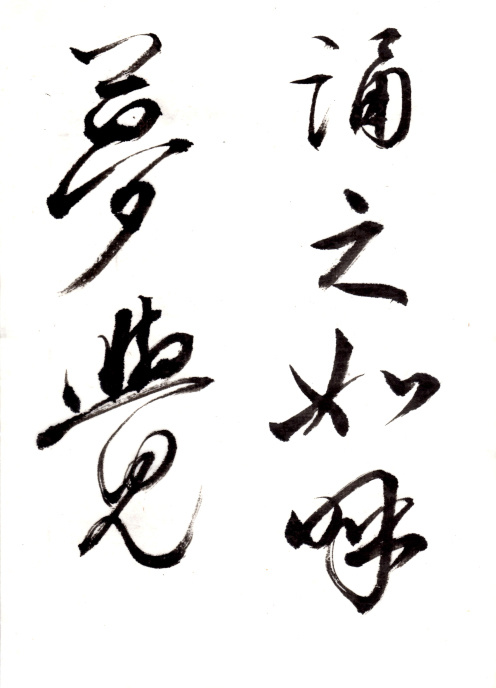 誦之如睡
夢覺